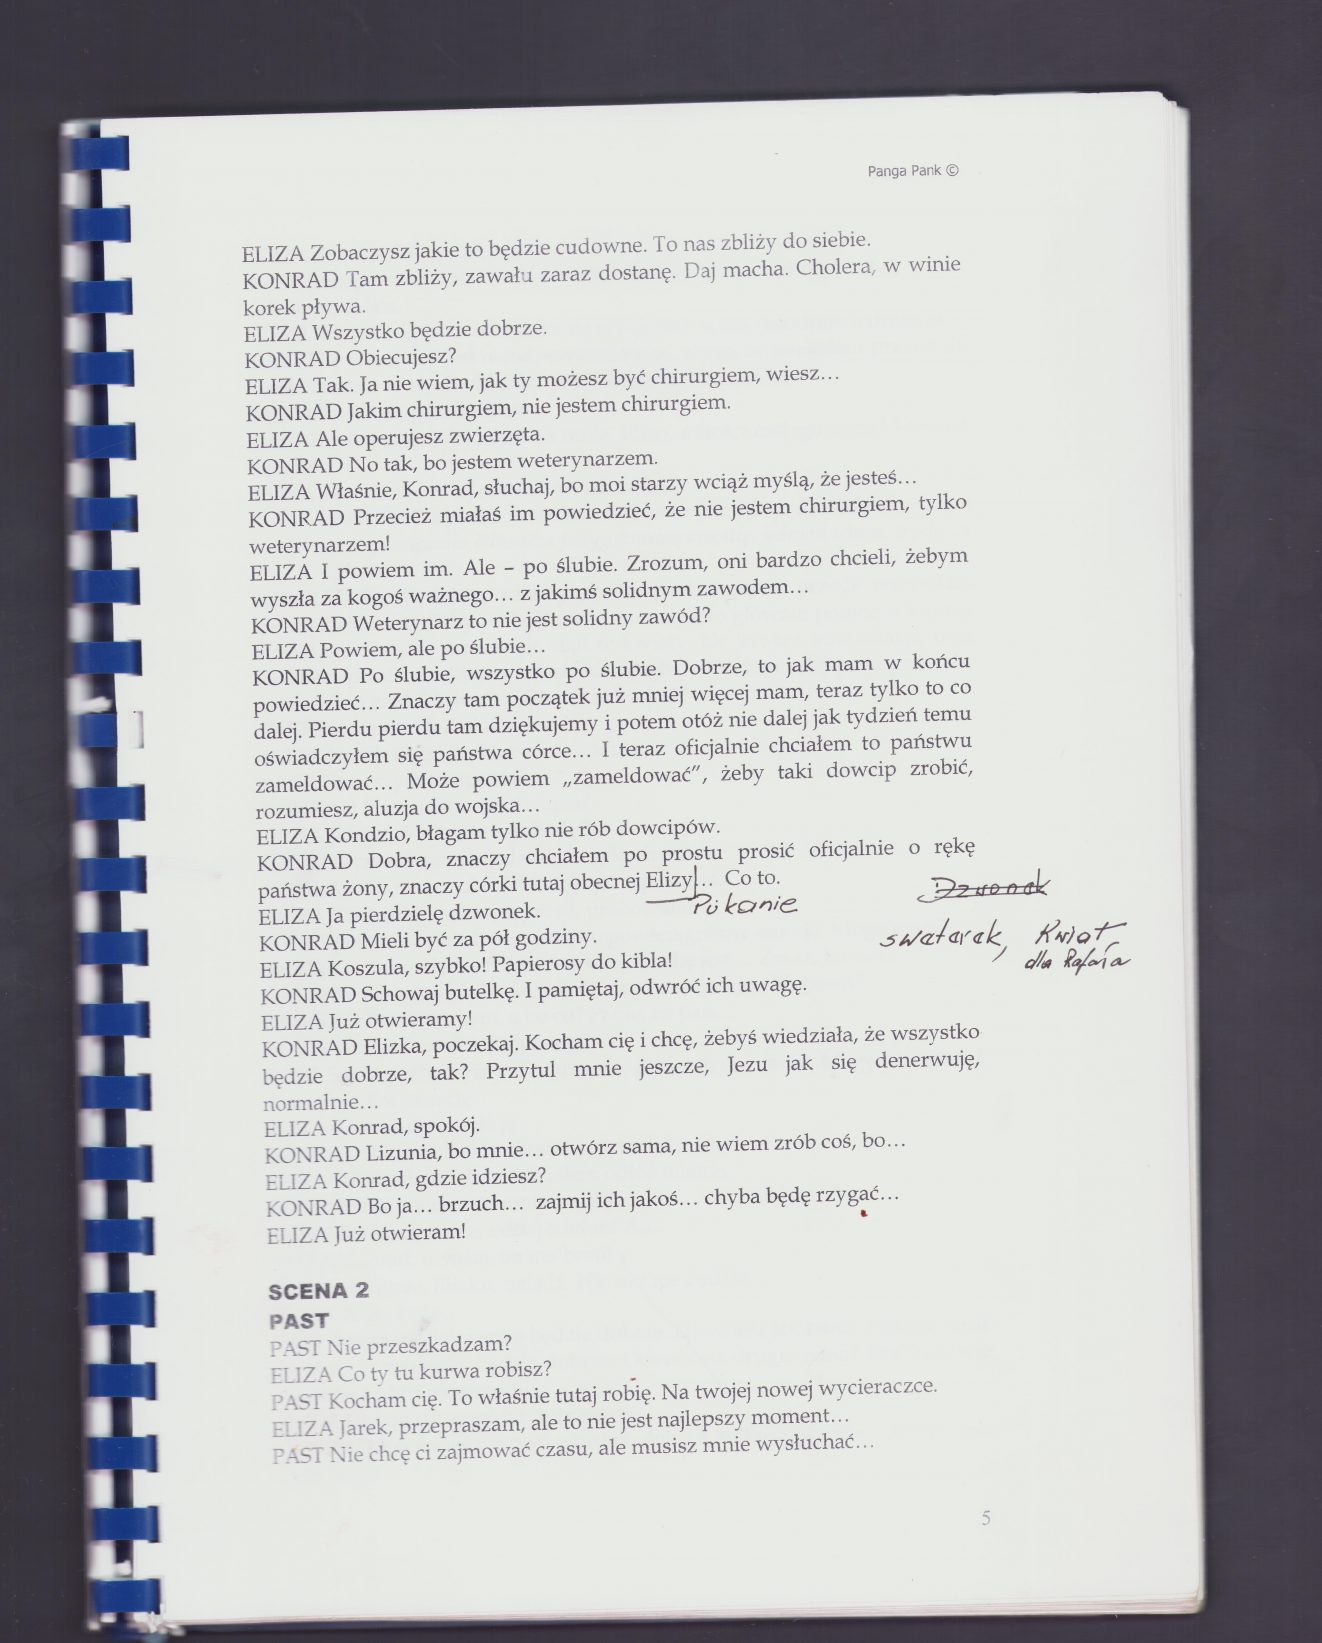 Panga Pank ©
ELIZA Zobaczysz jakie to będzie cudowne. To nas zbliży do siebie.
KONRAD Tam zbliży, zawału zaraz dostanę. Daj macha. Cholera, w winie
korek pływa.
ELIZA Wszystko będzie dobrze.
KONRAD Obiecujesz?
ELIZA Tak. Ja nie wiem, jak ty możesz być chirurgiem, wiesz…
KONRAD Jakim chirurgiem, nie jestem chirurgiem.
ELIZA Ale operujesz zwierzęta.
KONRAD No tak, bo jestem weterynarzem.
ELIZA Właśnie, Konrad, słuchaj, bo moi starzy wciąż myślą, że jesteś…
KONRAD Przecież miałaś im powiedzieć, że nie jestem chirurgiem, tylko
weterynarzem!
ELIZA I powiem im. Ale – po ślubie. Zrozum, oni bardzo chcieli, żebym
wyszła za kogoś ważnego… z jakimś solidnym zawodem…
KONRAD Weterynarz to nie jest solidny zawód?
ELIZA Powiem, ale po ślubie…
KONRAD Po ślubie, wszystko po ślubie. Dobrze, to jak mam w końcu
powiedzieć… Znaczy tam początek już mniej więcej mam, teraz tylko to co
dalej. Pierdu pierdu tam dziękujemy i potem otóż nie dalej jak tydzień temu
oświadczyłem się państwa córce… I teraz oficjalnie chciałem to państwu
zameldować… Może powiem „zameldować”, żeby taki dowcip zrobić,
rozumiesz, aluzja do wojska…
ELIZA Kondzio, błagam tylko nie rób dowcipów.
KONRAD Dobra, znaczy chciałem po prostu prosić oficjalnie o rękę
państwa żony, znaczy córki tutaj obecnej Elizy… Co to.
Dzwonek
Pukanie
ELIZA Ja pierdzielę dzwonek.
KONRAD Mieli być za pół godziny.
sweterek, Kwiat
dla Rafała
ELIZA Koszula, szybko! Papierosy do kibla!
KONRAD Schowaj butelkę. I pamiętaj, odwróć ich uwagę.
ELIZA Już otwieramy!
KONRAD Elizka, poczekaj. Kocham cię i chcę, żebyś wiedziała, że wszystko
będzie dobrze, tak? Przytul mnie jeszcze, Jezu jak się denerwuję,
normalnie…
ELIZA Konrad, spokój.
KONRAD Lizunia, bo mnie… otwórz sama, nie wiem zrób coś, bo…
ELIZA Konrad, gdzie idziesz?
KONRAD Bo ja… brzuch… zajmij ich jakoś… chyba będę rzygać…
ELIZA Już otwieram!
SCENA 2
PAST
PAST Nie przeszkadzam?
ELIZA Co ty tu kurwa robisz?
PAST Kocham cię. To właśnie tutaj robię. Na twojej nowej wycieraczce.
ELIZA Jarek, przepraszam, ale to nie jest najlepszy moment…
PAST Nie chcę ci zajmować czasu, ale musisz mnie wysłuchać…
5